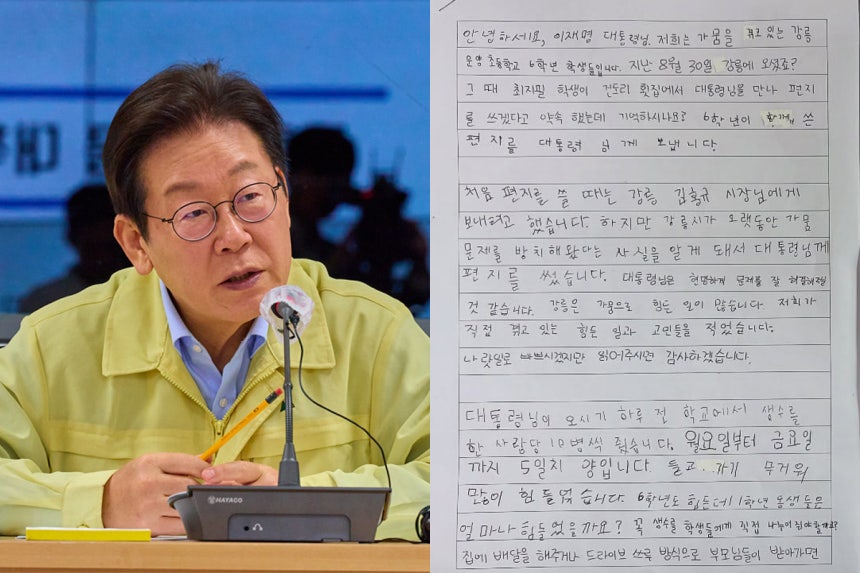 HAYACO
안녕하세요, 이재명 대통령님. 저희는 가뭄을 겪고 있는 강릉
운양 초등학교 6학년 학생들입니다. 지난 8월 30일 강릉에 오셨죠?
그 때 최지필 학생이 건도리 횟집에서 대통령님을 만나 편지
를 쓰겠다고 약속 했는데 기억하시나요? 6학년이 함께 쓴
편지를 대통령 님께 보냅니다.
처음 편지를 쓸 때는 강릉 김홍규 시장님에게
보내려고 했습니다. 하지만 강릉시가 오랫동안 가뭄
문제를 방치해 왔다는 사실을 알게 돼서 대통령님께
편지를 썼습니다. 대통령님은 현명하게 문제를 잘 해결해주실
것 같습니다. 강릉은 가뭄으로 힘든 일이 많습니다. 저희가
직접 겪고 있는 힘든 일과 고민들을 적었습니다.
나랏일로 바쁘시겠지만 읽어주시면 감사하겠습니다.
대통령님이 오시기 하루 전 학교에서 생수를
한 사람당 10병씩 줬습니다. 월요일부터 금요일
까지 5일치 양입니다. 들고 가기 무거워
많이 힘들었습니다. 6학년도 힘든데 1학년 동생들은
얼마나 힘들었을까요? 꼭 생수를 학생들에게 직접 나누어줘야 할까요?
집에 배달을 해주거나 드라이브 쓰루 방식으로 부모님들이 받아가면